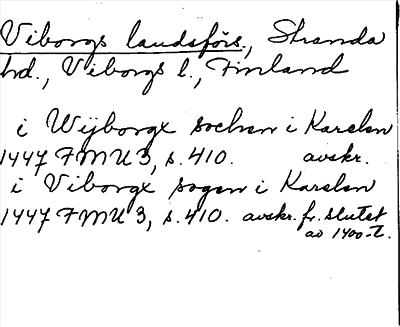 Viborgs landsförs., Stranda
hd., Viborgs l., Finland
i Wijborgx sochen i Karelen
1447 FMU 3, s. 410. avskr.
i Viborgx sogen i Karelen
1447 FMU 3, s. 410. avskr. fr. slutet
av 1400-t.